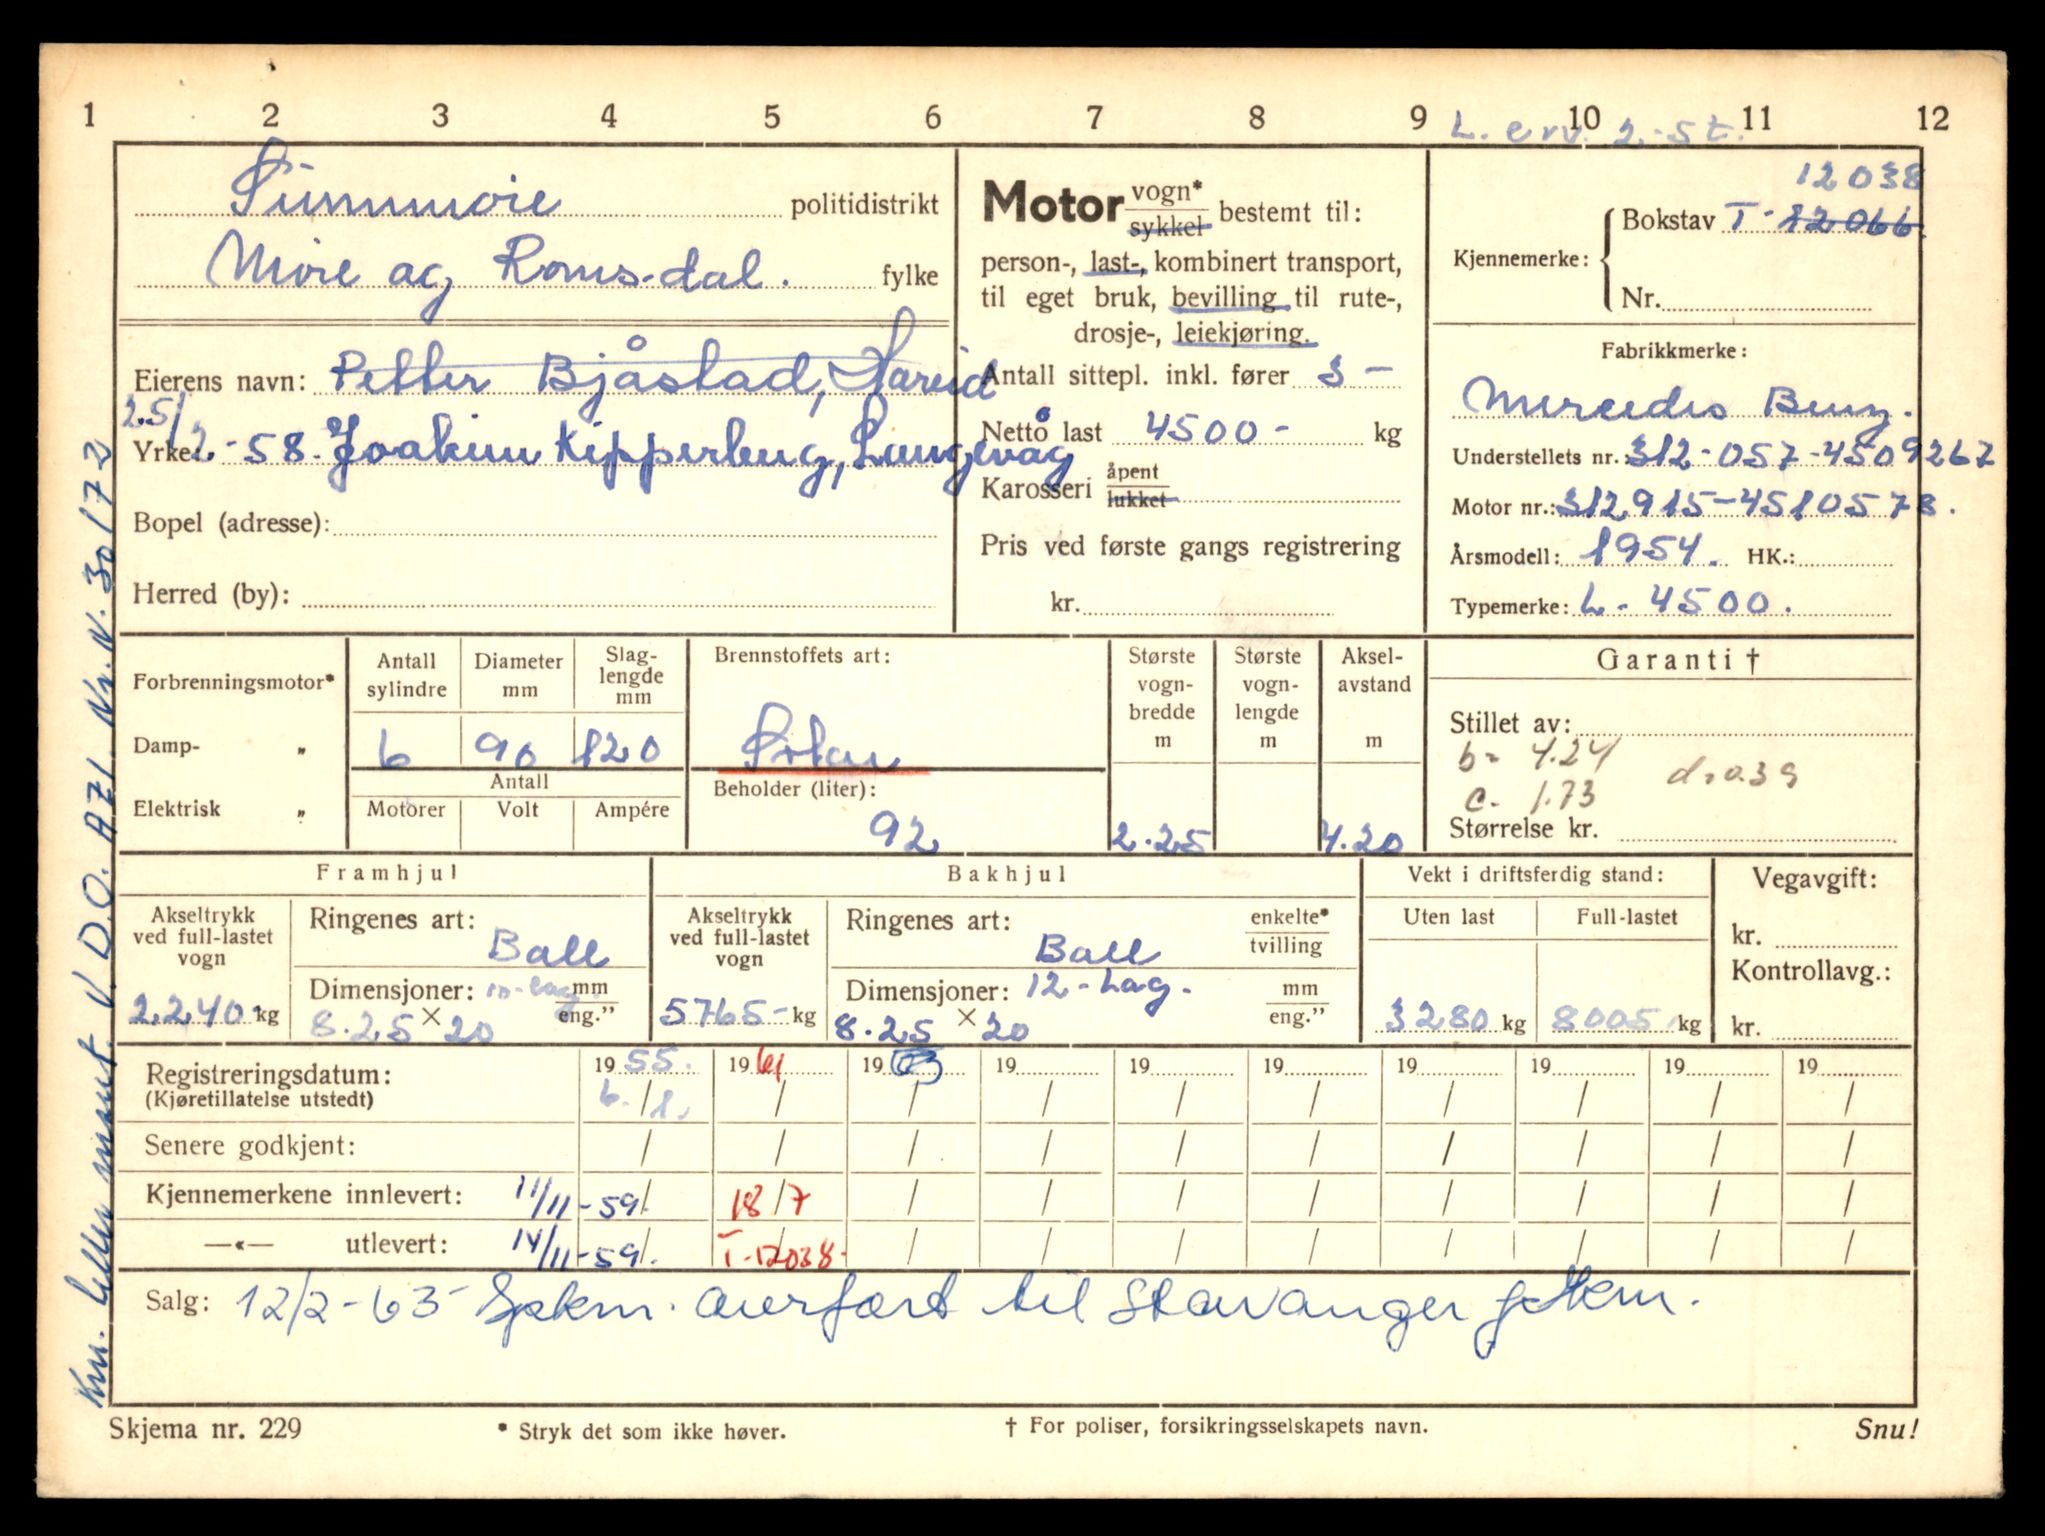 1 2 3 4 5 6 7 8 9 10 11 12
L. erv. 2.-St.
Sunnmøre politidistrikt
Møre og Romsdal. fylke
Eierens navn: Petter Bjåstad, Hareid
Yrke: 25/2-58. Joakim Kipperberg, Langevåg
Bopel (adresse):
Herred (by):
Motor vogn* sykkel bestemt til:
person-, last-, kombinert transport,
til eget bruk, bevilling til rute-,
drosje-, leiekjøring.
Antall sittepl. inkl. fører 3 -
Netto last 4500- kg
Karosseri åpent lukket
Pris ved første gangs registrering
kr.
12038
Kjennemerke: Bokstav T-12066.
Nr.
Fabrikkmerke:
Mercedes Benz.
Understellets nr.: 312-057-4509267
Motor nr.: 312915-4510578.
Årsmodell: 1954. HK.:
Typemerke: L-4500.
Forbrenningsmotor*
Damp- „
Elektrisk „
Antall sylindre Diameter mm Slag-lengde mm
6 90 120
Antall
Motorer Volt Ampére
Brennstoffets art:
Solar
Beholder (liter):
92
Største vogn-bredde m
2.25
Største vogn-lengde m
Aksel-avstand m
4.20
Garanti †
Stillet av:
b= 4.24 d=0.39
c. 1.73
Størrelse kr.
Framhjul
Akseltrykk ved full-lastet vogn
2240 kg
Ringenes art: Ball
Dimensjoner: 10-lag. mm eng."
8.25 × 20
Bakhjul
Akseltrykk ved full-lastet vogn
5765- kg
Ringenes art: Ball enkelte* tvilling
Dimensjoner: 12-Lag. mm eng."
8.25 × 20
Vekt i driftsferdig stand:
Uten last Full-lastet
3280 kg 8005 kg
Vegavgift:
kr.
Kontrollavg.:
kr.
Registreringsdatum: 1955. 1961 1963 19 19 19 19 19 19 19
(Kjøretillatelse utstedt) 6./1. / / / / / / / / /
Senere godkjent: / / / / / / / / / /
Kjennemerkene innlevert: 11/11-59/. 18/7 / / / / / / / /
—«— utlevert: 14/11-59/. T-12038- / / / / / / / /
Salg: 12/2-63 Spkm. overført til Stavanger
Skjema nr. 229 * Stryk det som ikke høver. † For poliser, forsikringsselskapets navn. Snu!